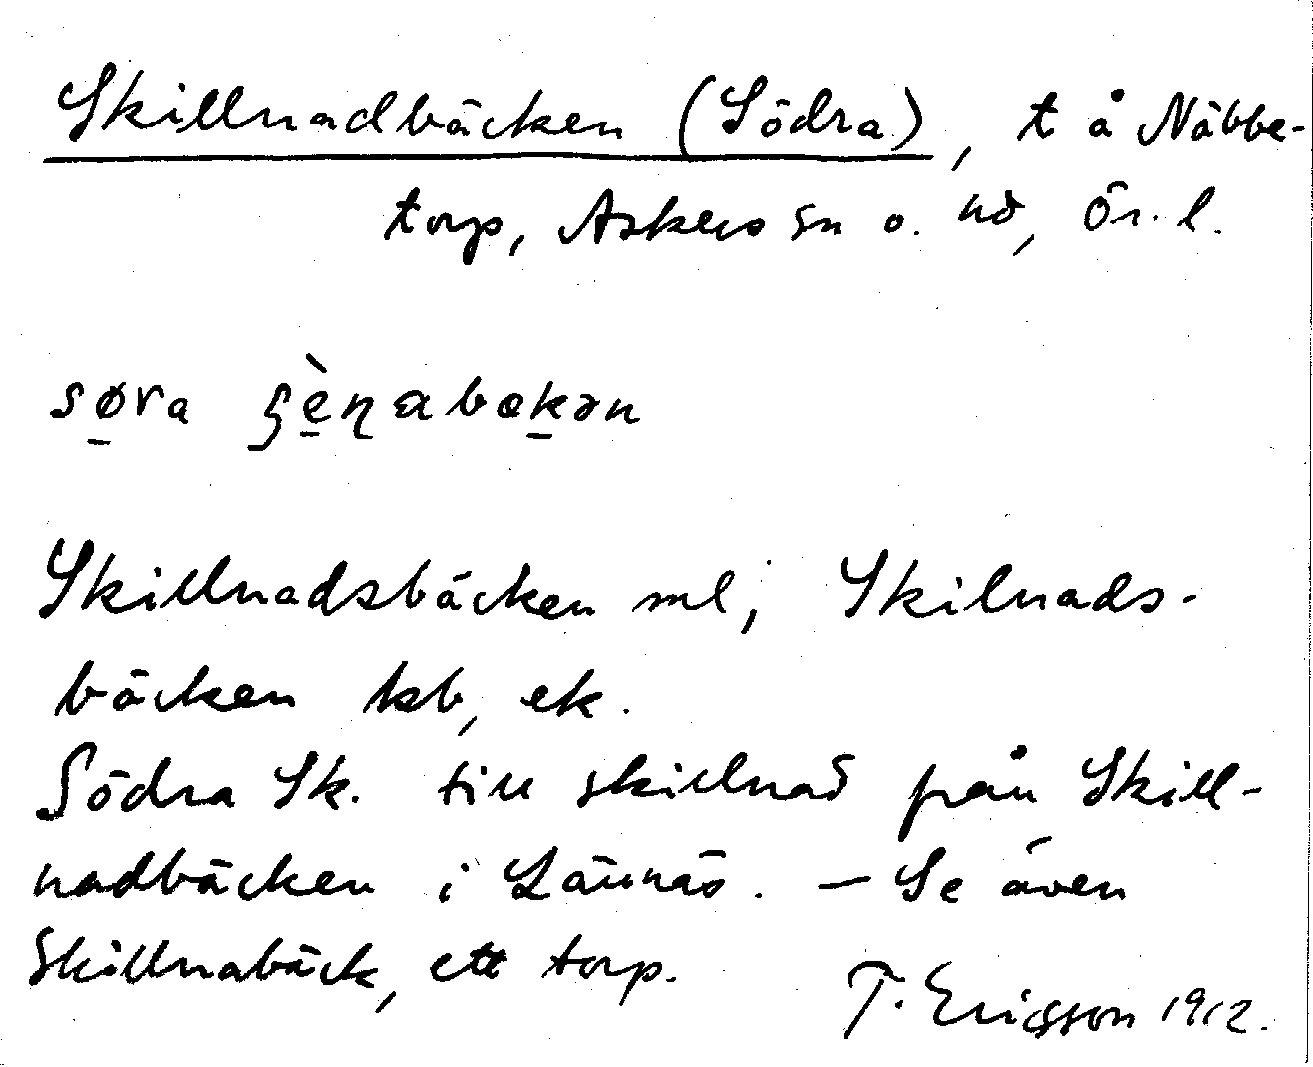 Skillnadbäcken (Södra), t å Näbbe-
torp, Askers sn o. hd, Ör. l.
søra ʂènabækən
Skillnadsbäcken ml, Skilnads-
bäcken kb, ek.
Södra Sk. till skillnad från Skill-
nadbäcken i Lännäs. – Se även
Skillnabäck, ett torp.
T. Ericsson 1912.